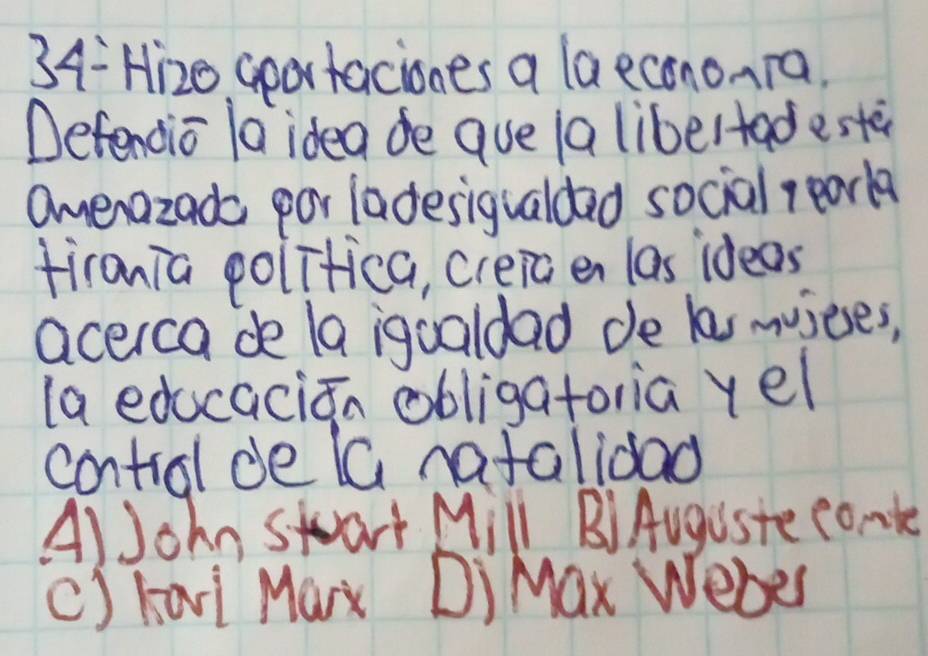 34- Hizo aportaciones a la economía.
Defendió la idea de que la libertad está
amenazada por la desigualdad social y por la
tiranía política, creía en las ideas
acerca de la igualdad de las mujeres,
la educación obligatoria y el
control de la natalidad
A) John Stuart Mill B) Auguste Comte
C) Karl Marx D) Max Weber